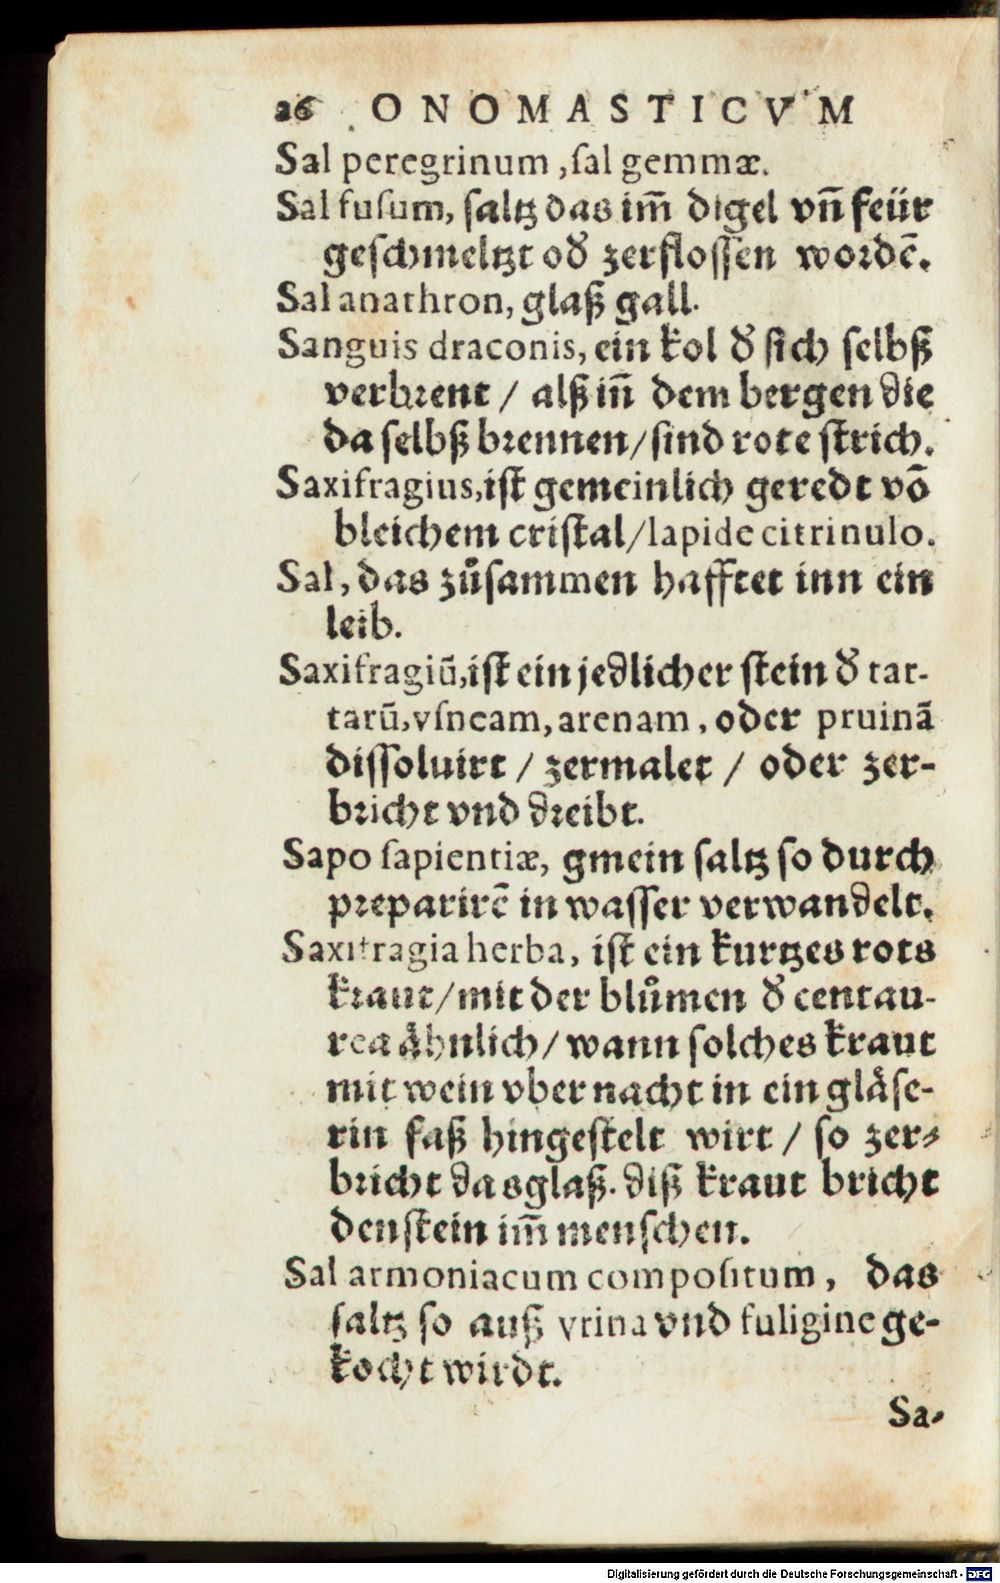 26 ONOMASTICVM
Sal peregrinum, ſal gemmæ.
Sal fuſum, ſaltz das im̃ digel vñ feür
geſchmeltzt oď zerfloſſen wordẽ.
Sal anathron, glaß gall.
Sanguis draconis, ein kol ď ſich ſelbß
verbrent / alß iñ dem bergen die
da ſelbß brennen/ſind rote ſtrich.
Saxifragius, iſt gemeinlich geredt võ
bleichem criſtal/lapide citrinulo.
Sal, das zůſammen hafftet inn ein
leib.
Saxifragiũ, iſt ein jedlicher ſtein ď tar-
tarũ, vſneam, arenam, oder pruinã
diſſoluirt / zermalet / oder zer-
bricht vnd dreibt.
Sapo ſapientiæ, gmein ſaltz ſo durch
preparirẽ in waſſer verwandelt.
Saxifragia herba, iſt ein kurtzes rots
kraut/mit der blůmen ď centau-
rea aͤhnlich/wann ſolches kraut
mit wein vber nacht in ein glaͤſe-
rin faß hingeſtelt wirt / ſo zer-
bricht das glaß. diß kraut bricht
den ſtein im̃ menſchen.
Sal armoniacum compoſitum, das
ſaltz ſo auß vrina vnd fuligine ge-
kocht wirdt.
Sa-
Digitalisierung gefördert durch die Deutsche Forschungsgemeinschaft - DFG